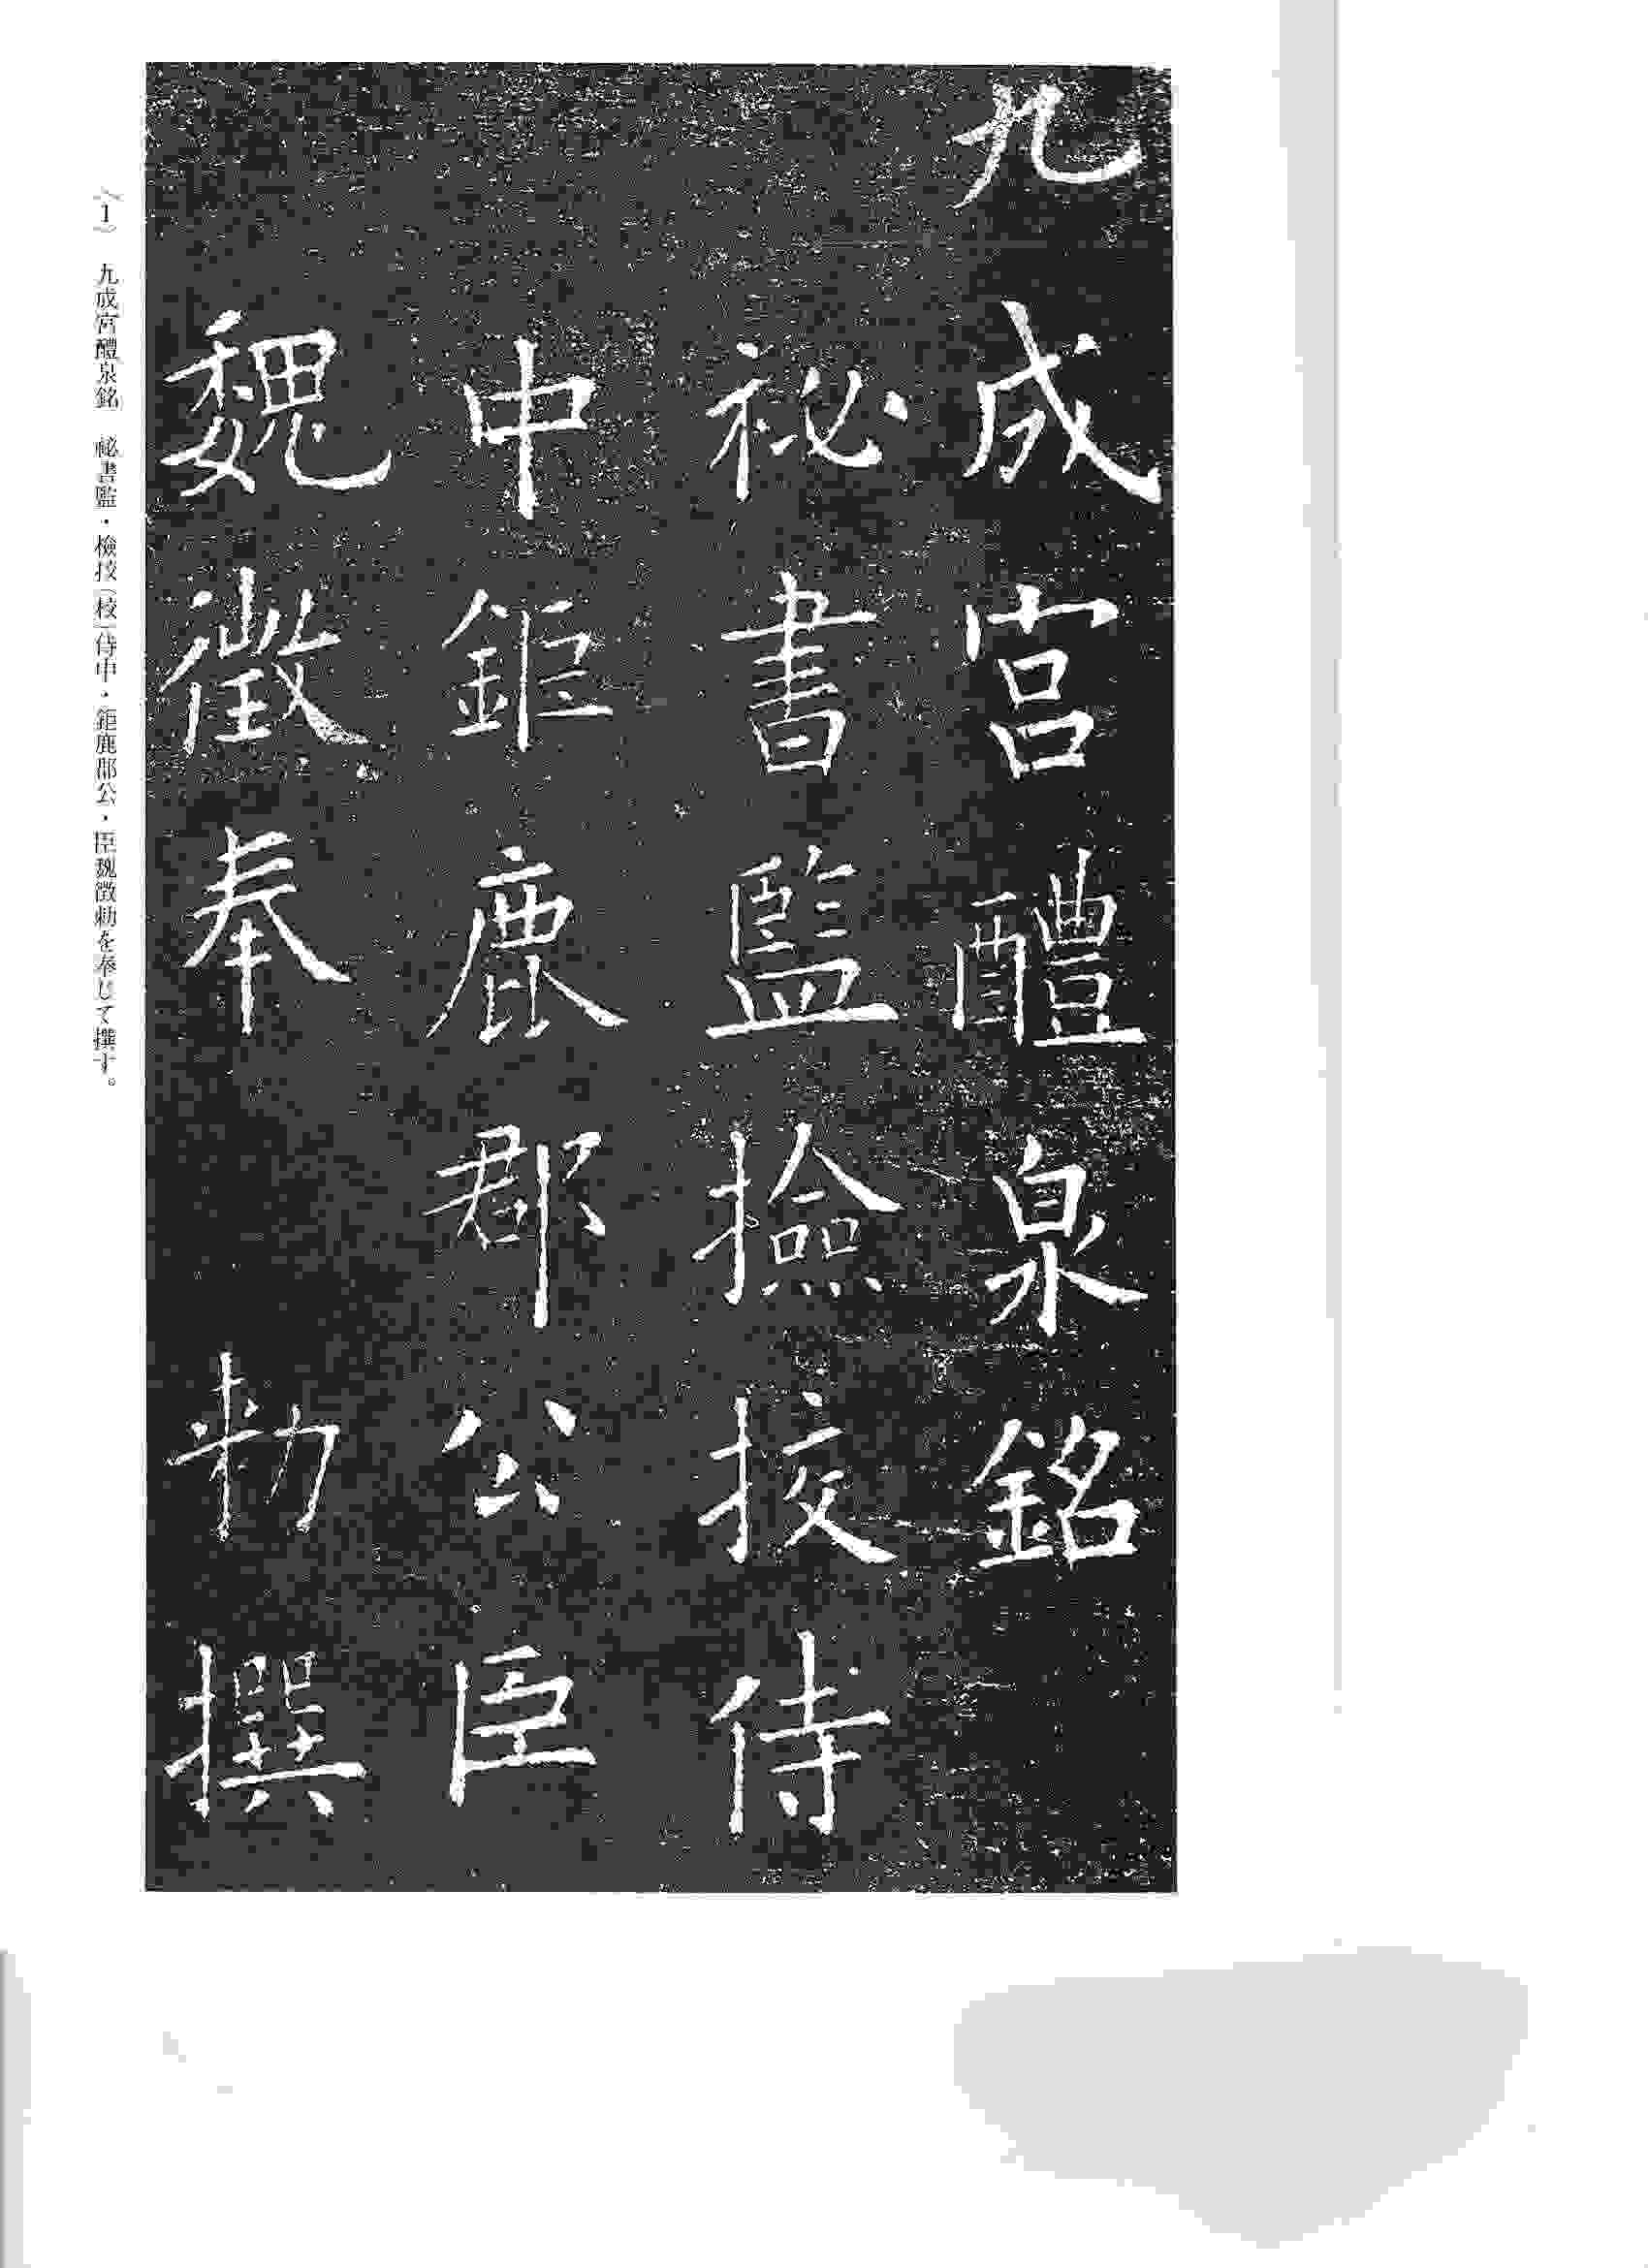 九成宮醴泉銘
祕書監撿挍侍
中鉅鹿郡公臣
魏徵奉勑撰
〈1〉 九成宮醴泉銘 祕書監・檢挍(校)侍中・鉅鹿郡公・臣魏徴勅を奉じて撰す。